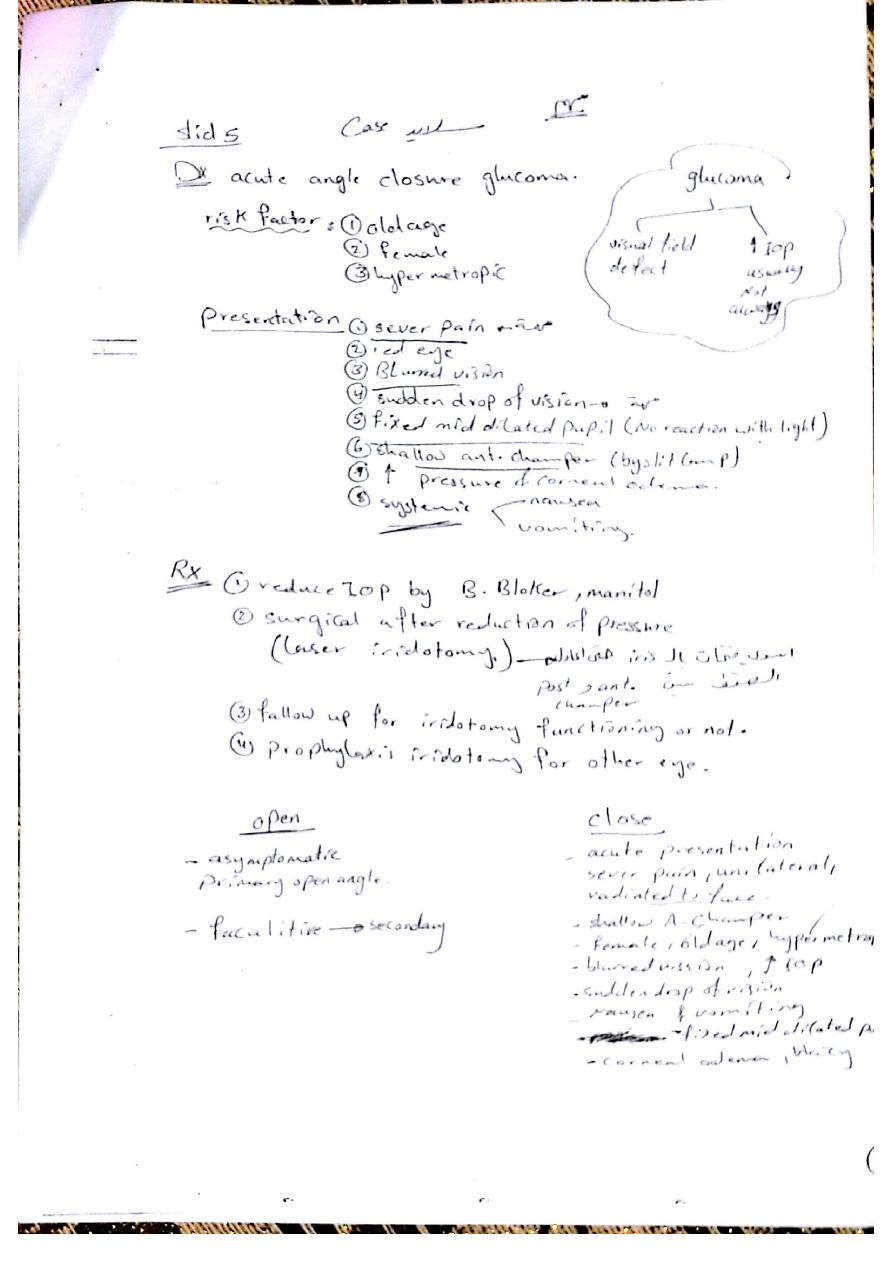 slid 5 Case سلايد
Dx acute angle closure glucoma.
glucoma
visual field defect
↑ IOP usually Not always
risk factor: ① old age
② female
③ hyper metropic
Presentation ① sever pain
② red eye
③ Blurred vision
④ sudden drop of vision →
⑤ fixed mid dilated pupil (No reaction with light)
⑥ shallow ant. champer (by slit lamp)
⑦ ↑ pressure & corneal odema.
⑧ systemic
nausea
vomiting.
Rx ① reduce IOP by B. Bloker, manitol
② surgical after reduction of pressure
(laser iridotomy.) → iris الـ
post و ant. بين الضغط
champer
③ fallow up for iridotomy functioning or not.
④ prophylaxis iridotomy for other eye.
open
- asymptomatic
primary open angle.
- faculitive → secondary
close
- acute presentation
sever pain, unilateral,
radiated to face.
- shallow A. Champer
- female, old age, hypermetrop
- blurred vission, ↑ IOP
- sudden drop of vision
- nausea & vomiting
- fixed mid dilated p
- corneal odema, hazy